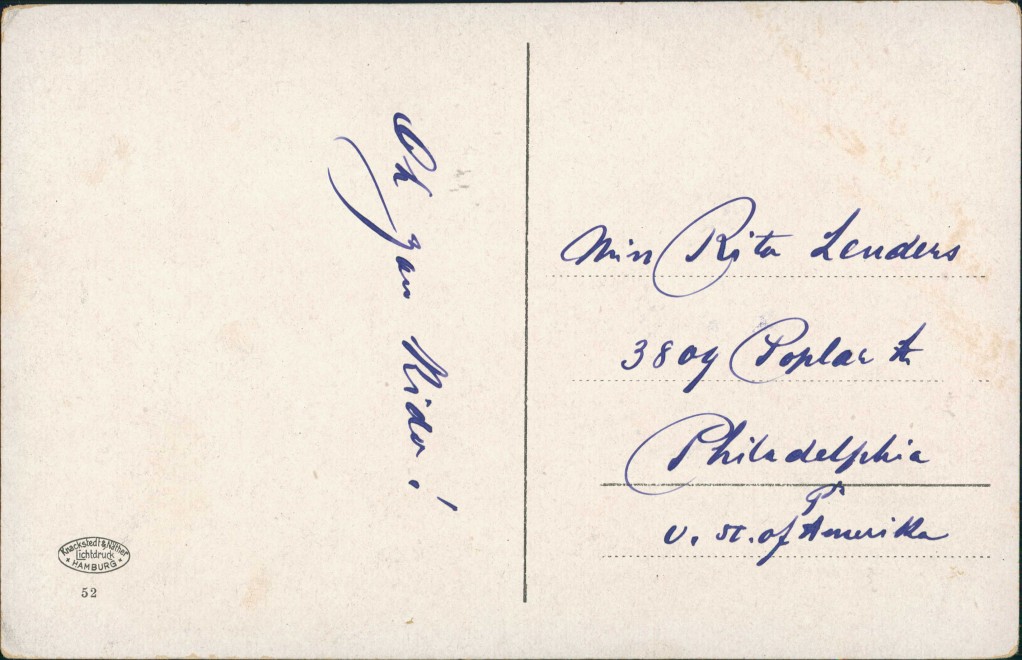 Oh you Kido!
Miss Rita Lenders
3809 Poplar St
Philadelphia
Pa
U. St. of Amerika
Knackstedt & Näther
Lichtdruck
HAMBURG
52